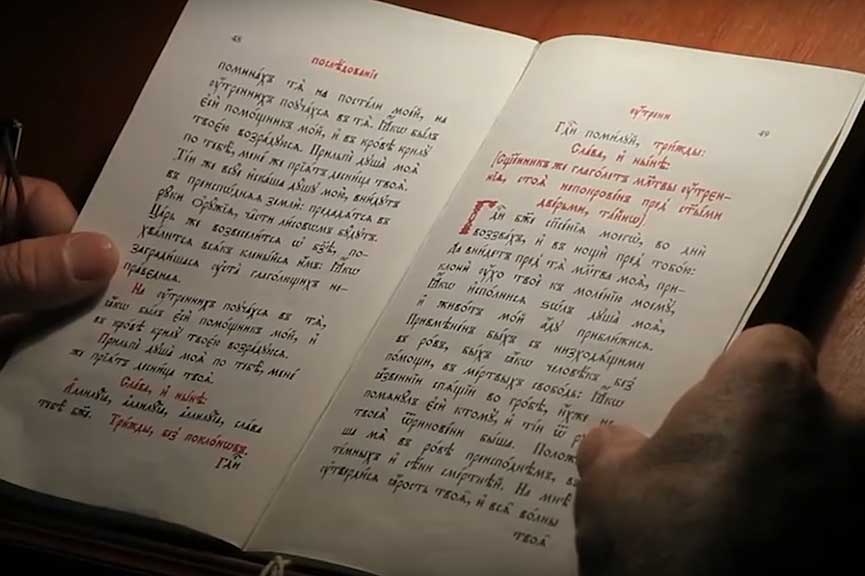 48
послѣ́дованїе
помина́хъ тѧ̀ на посте́ли мое́й, на
оу҆́тренних поуча́хсѧ въ тѧ̀. Ꙗ҆́кѡ бы́лъ
є҆сѝ помо́щникъ мо́й, и҆ въ кро́вѣ крилꙋ̀
твоє́ю возра́дꙋюсѧ. Прильпѐ дꙋша̀ моѧ̀
по тебѣ̀, мене́ же прїѧ́тъ десни́ца твоѧ̀.
Ті́и же всꙋ́е и҆ска́ша дꙋ́шꙋ мою̀, вни́дꙋтъ
въ преиспѡ́днѧѧ землѝ: предадѧ́тсѧ въ
рꙋ́ки ѻ҆рꙋ́жїѧ, ча̑сти лисовѡ́мъ бꙋ́дꙋтъ.
Ца́рь же возвесели́тсѧ ѡ҆ бз҃ѣ, по-
хва́литсѧ всѧ́къ клены́йсѧ и҆́мъ: Ꙗ҆́кѡ
загради́шасѧ оу҆ста̀ глаго́лющихъ не-
пра́вєднаѧ.
На оу҆́тренних поуча́хсѧ въ тѧ̀,
ꙗ҆́кѡ бы́лъ є҆сѝ помо́щникъ мо́й, и҆
въ кро́вѣ крилꙋ̀ твоє́ю возра́дꙋюсѧ.
Прильпѐ дꙋша̀ моѧ̀ по тебѣ̀, мене́
же прїѧ́тъ десни́ца твоѧ̀.
Сла́ва, и҆ ны́нѣ:
А҆ллилꙋ́їа, а҆ллилꙋ́їа, а҆ллилꙋ́їа, сла́ва
тебѣ̀ бж҃е. Три́жды, без̾ покло́нѡвъ.
Гдⷭ҇и
оу҆́трени
49
Гдⷭ҇и поми́лꙋй, три́жды:
Сла́ва, и҆ ны́нѣ:
[Сщ҃е́нникъ же глаго́летъ мл҃твы оу҆́трен-
нїѧ, стоѧ̀ непокрове́нъ пред̾ ст҃ы́ми
две́рьми, та́йнѡ].
Гдⷭ҇и бж҃е сп҃се́нїѧ моегѡ̀, во днѝ
воззва́хъ, и҆ въ нощѝ пред̾ тобо́ю:
Да вни́детъ пред̾ тѧ̀ мл҃тва моѧ̀, при-
клонѝ оу҆́хо твоѐ къ моле́нїю моемꙋ̀,
Ꙗ҆́кѡ и҆спо́лнисѧ ѕѡ́лъ дꙋша̀ моѧ̀,
и҆ живо́тъ мо́й а҆́дꙋ прибли́жисѧ.
Привмѣне́нъ бы́хъ съ низходѧ́щими
въ ро́въ, бы́хъ ꙗ҆́кѡ человѣ́къ без̾
по́мощи, въ ме́ртвыхъ свобо́дь: Ꙗ҆́кѡ
ꙗ҆́звеннїи спѧ́щїи во гро́бѣ, и҆́хже не
помѧнꙋ́лъ є҆сѝ ктомꙋ̀, и҆ ті́и ѿ
твоеѧ̀ ѿринове́ни бы́ша. Положи́
ша мѧ̀ въ ро́вѣ преиспо́днѣмъ, въ
те́мныхъ и҆ сѣ́ни сме́ртнѣй. На мнѣ̀
оу҆тверди́сѧ ꙗ҆́рость твоѧ̀, и҆ всѧ̑ во́лны
твоѧ̑